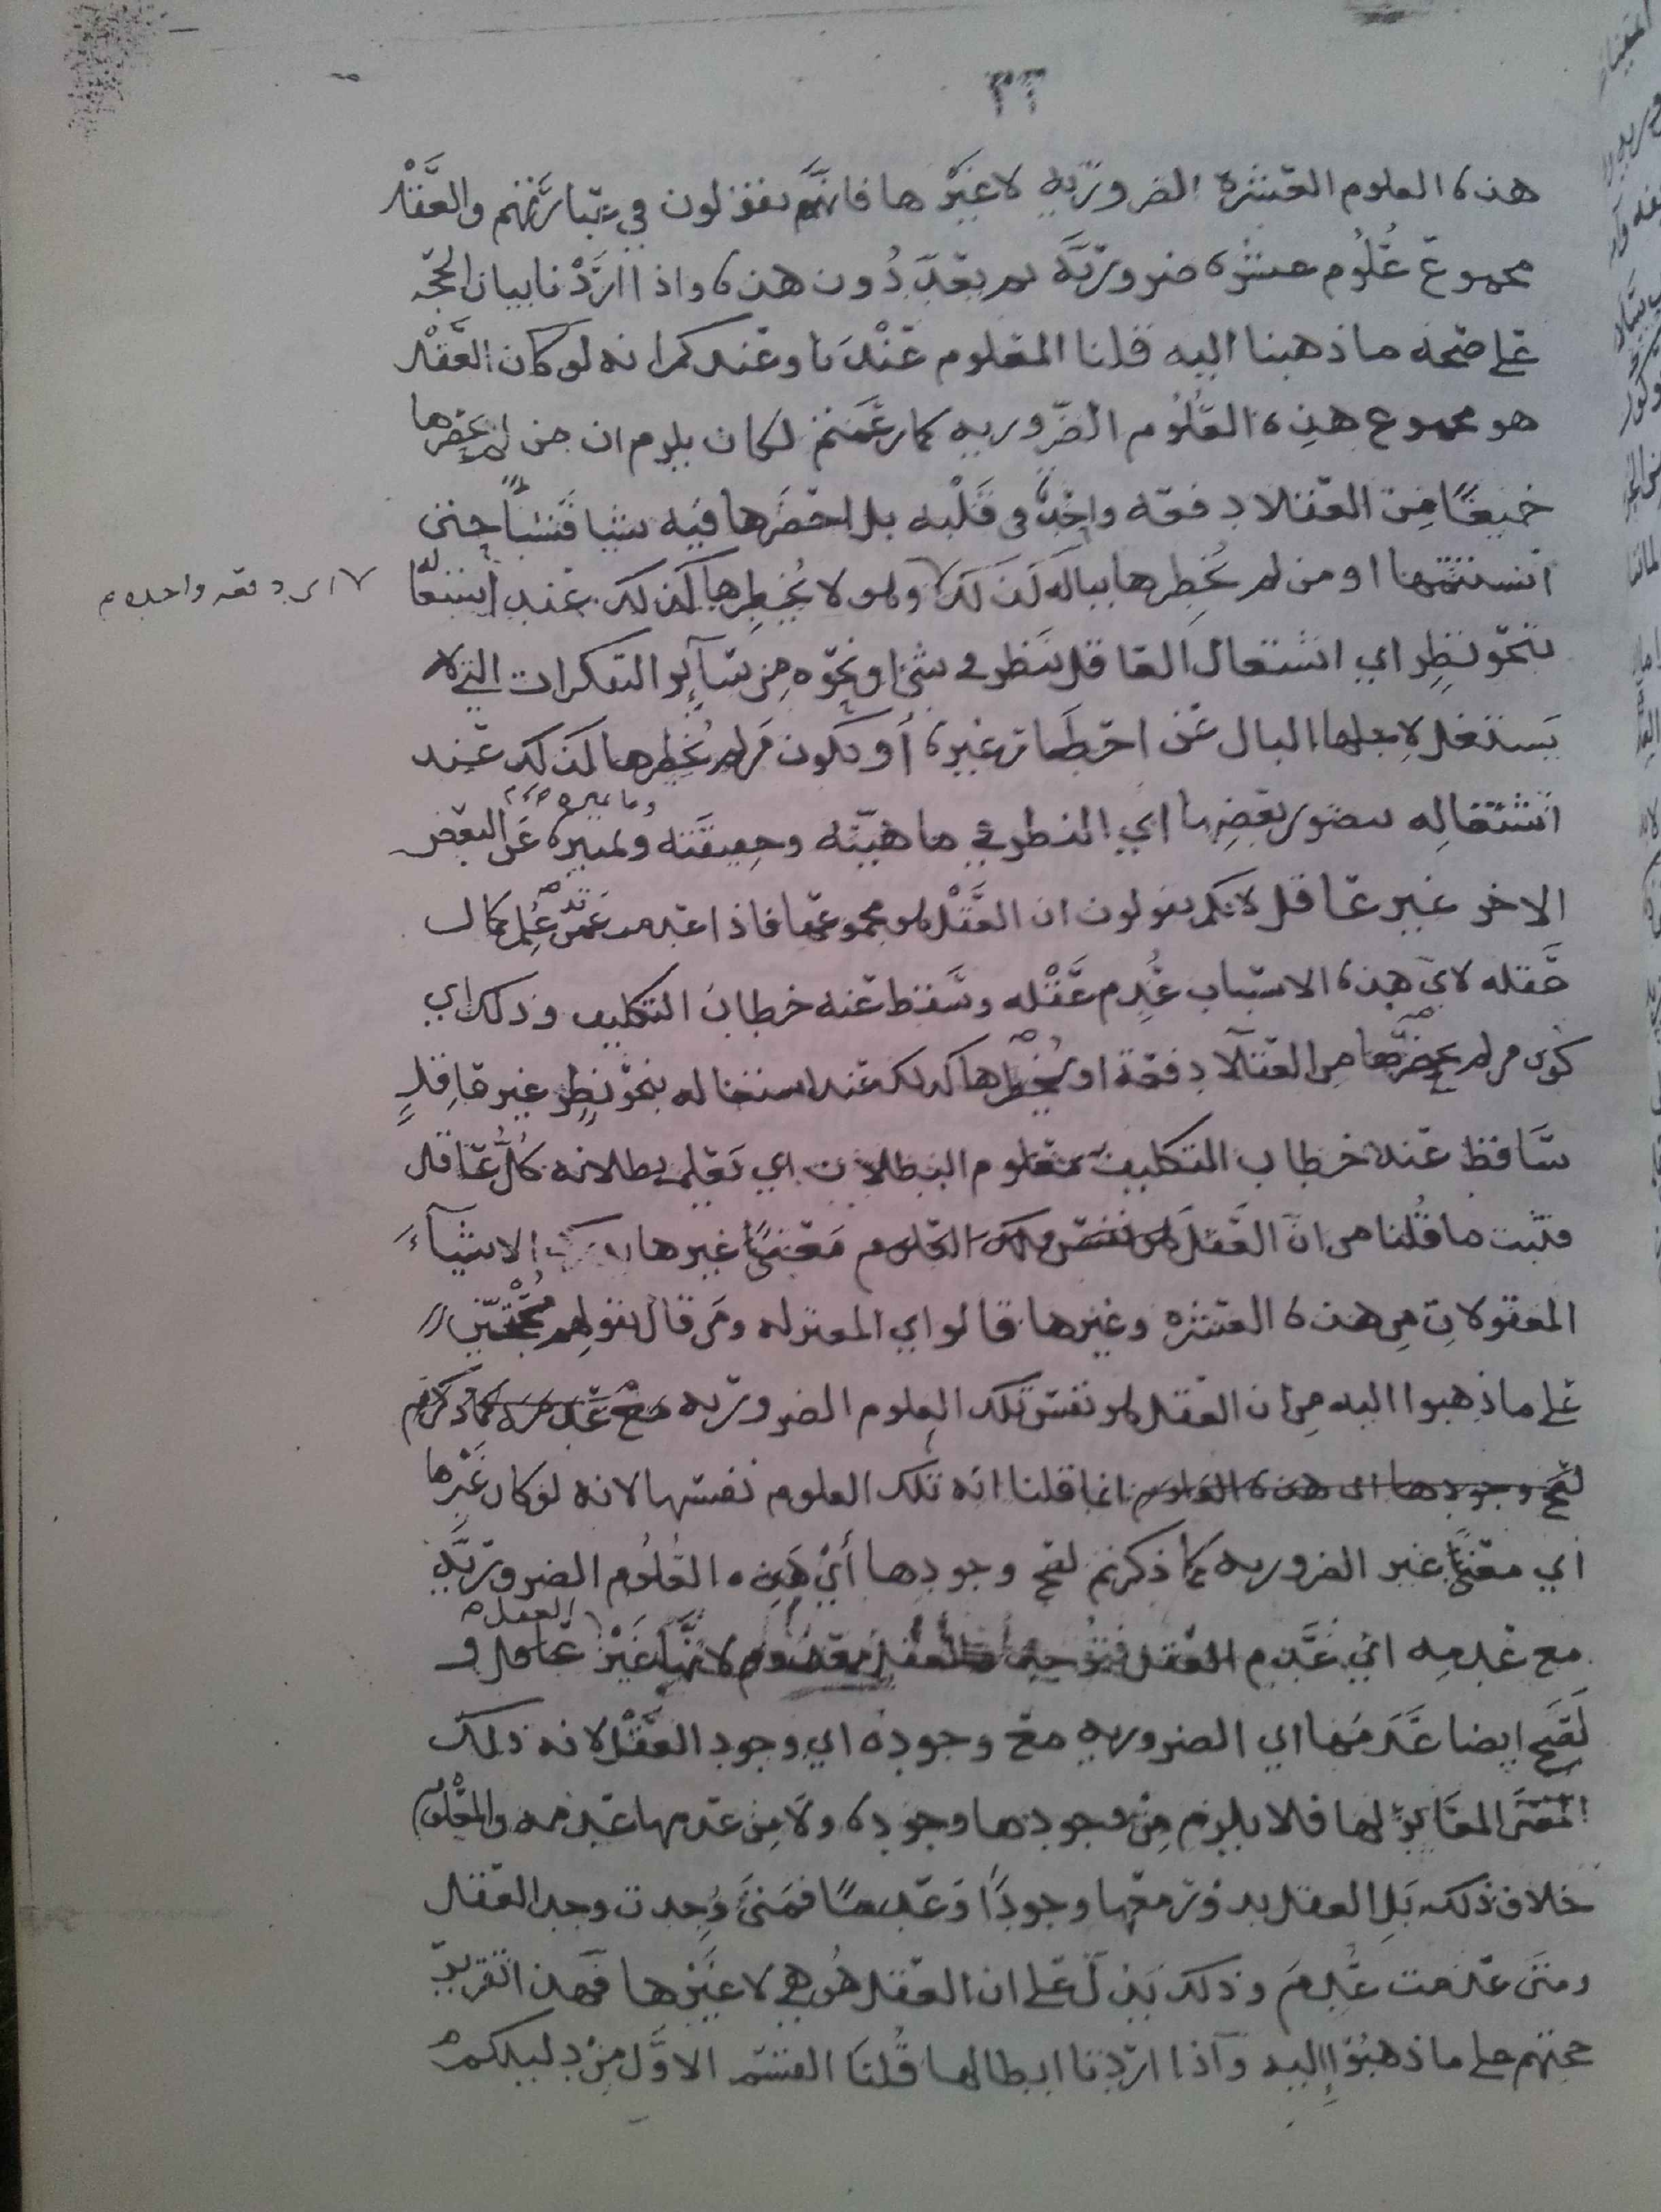 ٣٦
هذه العلوم العشرة الضرورية لا غيرها فانهم يقولون في عبارتهم والعقل
مجموع علوم عشرة ضرورية لم يعد دون هذه واذا اردنا بيان الحجة
على صحة ما ذهبنا اليه قلنا المعلوم عندنا وعندكم انه لو كان العقل
هو مجموع هذه العلوم الضرورية كما زعمتم لكان يلزم ان من لم يحضرها
جميعا من العقلا دفعة واحدة في قلبه بل احضرها فيه شيئا فشيئا حتى
استتمها او من لم يخطرها بباله كذلك ولو لا يخطرها كذلك عند اشتغاله
اي دفعه واحده م
بنحو نظر اي اشتغال العاقل بنظر في شيء او نحوه من سائر التفكرات التي لا
يستغل لاجلها البال عن اخطار غيره أو يكون من لم يخطرها كذلك عند
اشتغاله بتصور بعضها اي النظر في ماهيته وحقيقته وتمييزه عن البعض
الاخر غير عاقل لانكم تقولون ان العقل هو مجموعها فاذا عدمت عمن علم كمال
عقله لاي هذه الاسباب عدم عقله وسقط عنه خطاب التكليف وذلك اي
كون من لم يحضرها من العقلا دفعة او يخطرها كذلك عند اشتغاله بنحو نظر غير عاقل
ساقط عنه خطاب التكليف معلوم البطلان اي يعلم بطلانه كل عاقل
فثبت ما قلنا من ان العقل معنى غيرها الاشياء
المعقولات من هذه العشرة وغيرها قالوا اي المعتزلة ومن قال بقولهم محتجين
على ما ذهبوا اليه من ان العقل هو نفس تلك العلوم الضرورية
انما قلنا انه تلك العلوم نفسها لانه لو كان غيرها
اي معنى غير الضرورية كما ذكرتم لصح وجودها أي هذه العلوم الضرورية
مع عدمه اي عدم العقل لانها غير العقل و
لصح ايضا عدمها اي الضرورية مع وجوده اي وجود العقل لانه ذلك
المعنى المغاير لها فلا يلزم من وجودها وجوده ولا من عدمها عدمه والمعلوم
خلاف ذلك بل العقل يدور معها وجودا وعدما فمتى وجدت وجد العقل
ومتى عدمت عدم وذلك يدل على ان العقل هو هي لا غيرها فهذا تقرير
حجتهم على ما ذهبوا إليه وآذا اردنا ابطالها قلنا القسم الاول من دليلكم